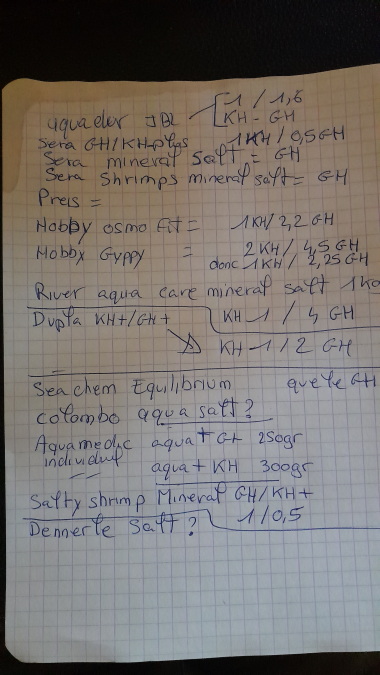 aquadur JBL 1 / 1,6
KH - GH
Sera GH/KH plus 1KH / 0,5GH
Sera mineral salt = GH
Sera Shrimps mineral salt = GH
Preis =
Hobby osmo fit = 1KH / 2,2 GH
Hobby Gyppy = 2 KH / 4,5 GH
donc 1KH / 2,25GH
River aqua care mineral salt 1kg
KH 1 / 4 GH
Dupla KH+/GH+
KH 1 / 2 GH
Seachem Equilibrium que le GH
Colombo aqua salt ?
Aquamedic aqua + GH 250gr
individuel
aqua + KH 300gr
Salty shrimp Mineral GH/KH+
1 / 0,5
Dennerle Salt ?